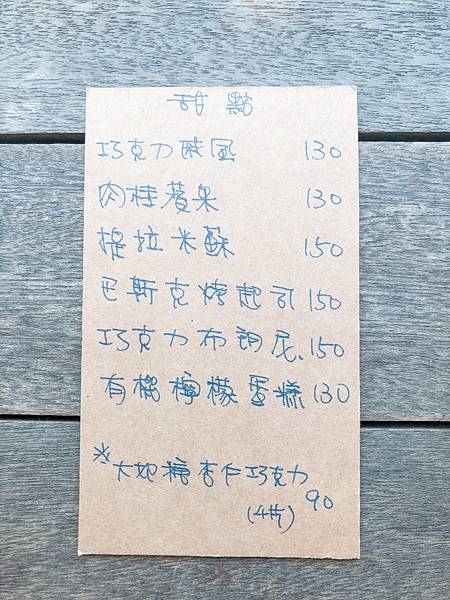 甜點
巧克力戚風 130
肉桂蘋果 130
提拉米蘇 150
巴斯克烤起司 150
巧克力布朗尼 150
有機檸檬蛋糕 130
※太妃糖杏仁巧克力
(4片) 90